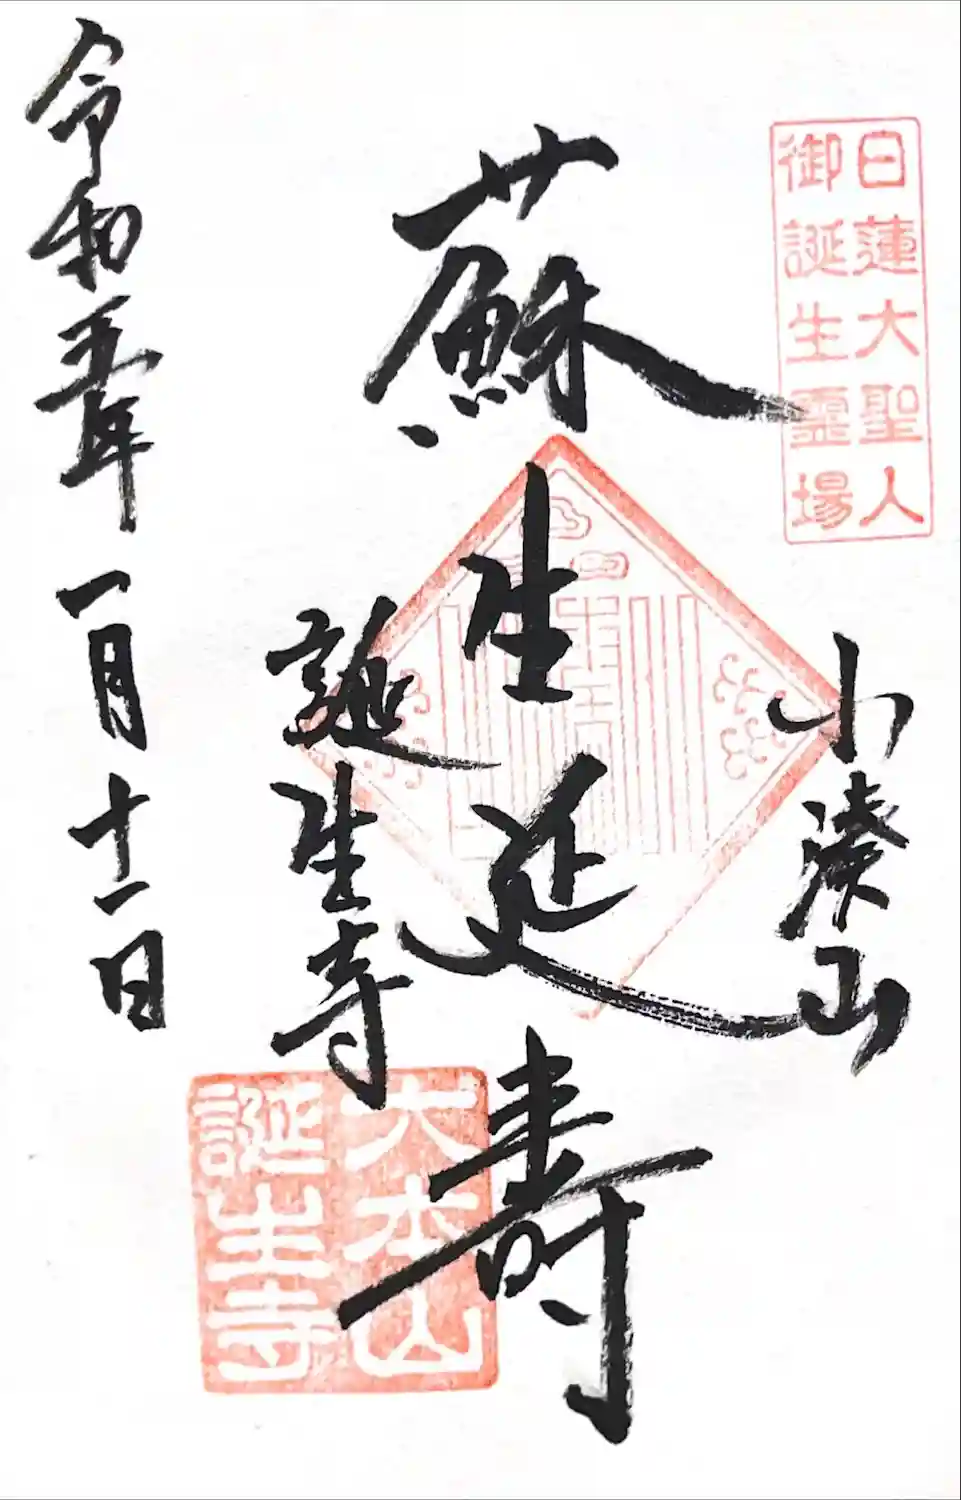 日蓮大聖人
御誕生霊場
小湊山
蘇生延寿
誕生寺
大本山
誕生寺
令和五年一月十一日